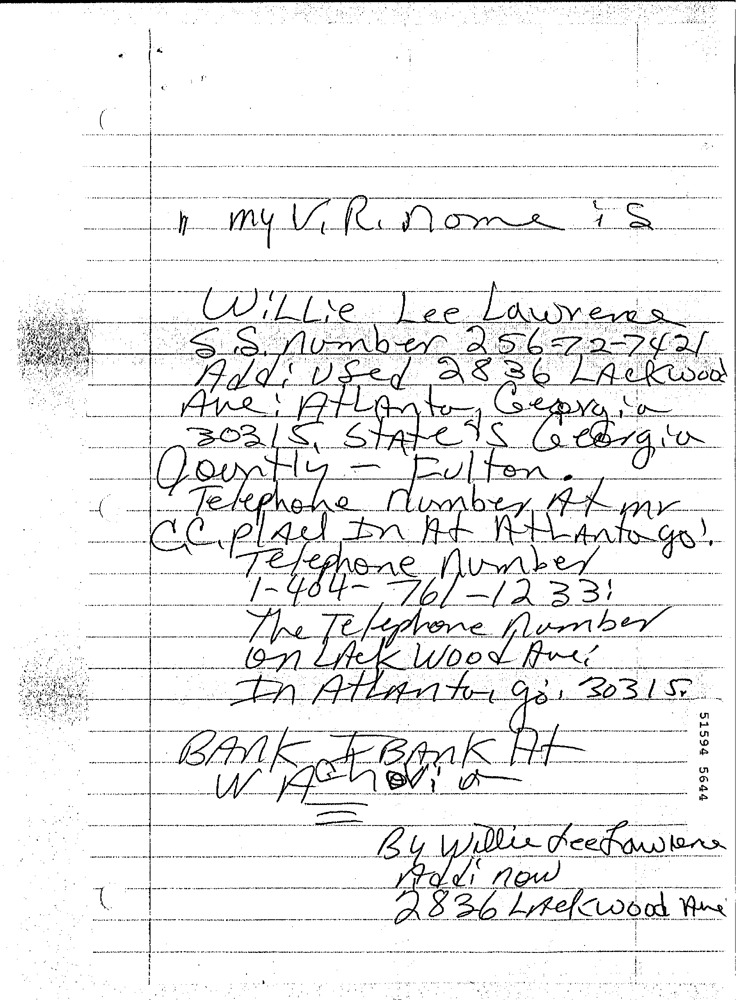 " my V.R. nome is
WiLLie Lee Lawrence
S.S. number 256-72-7421
Add: Used 2836 LAckwood
Ave: AtLAnta, Georgia
30315, StAte is Georgia
Qountly - Fulton.
Telephone number At mr
C.C. plAel In At AtLAnta go!.
Telephone number
1-404-761-1233!
The Telephone number
on LAck Wood Ave!
In AtLAnta, go. 30315.
BANK I BANK At
WAChovia
51594 5644
By Willie Lee Lawrence
Add: now
2836 LAckwood Ave